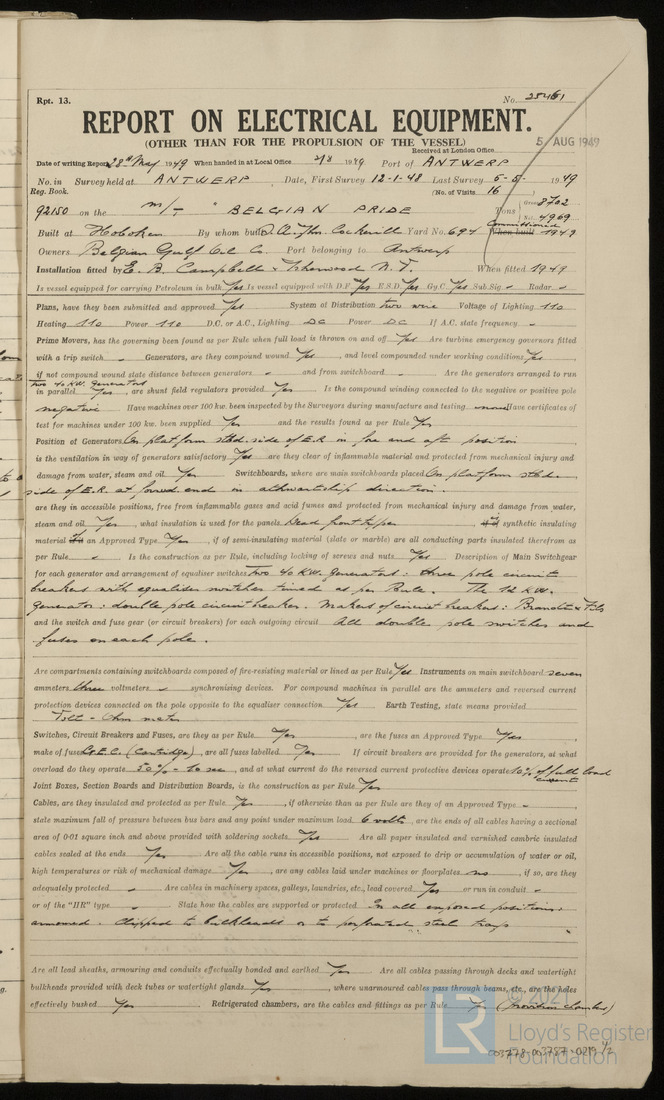 Rpt. 13.
No. 25461
REPORT ON ELECTRICAL EQUIPMENT.
(OTHER THAN FOR THE PROPULSION OF THE VESSEL)
Received at London Office 5 AUG 1949
Date of writing Report 28th May 1949 When handed in at Local Office 2/8 1949 Port of ANTWERP
No. in Survey held at ANTWERP Date, First Survey 12-1-48 Last Survey 5-5- 1949
Reg. Book. (No. of Visits 16
92150 on the m/T "BELGIAN PRIDE Tons Gross 8702 Net 4969
Built at Hoboken By whom built S.A. Jhn. Cockerill Yard No. 694 Commissioned When built 1949
Owners Belgian Gulf Oil Co. Port belonging to Antwerp
Installation fitted by E. B. Campbell & Isherwood N.V. When fitted 1949
Is vessel equipped for carrying Petroleum in bulk Yes Is vessel equipped with D.F. Yes E.S.D. Yes Gy.C. Yes Sub.Sig - Radar -
Plans, have they been submitted and approved Yes System of Distribution two wire Voltage of Lighting 110
Heating 110 Power 110 D.C. or A.C., Lighting DC Power DC If A.C. state frequency -
Prime Movers, has the governing been found as per Rule when full load is thrown on and off Yes Are turbine emergency governors fitted
with a trip switch - Generators, are they compound wound Yes, and level compounded under working conditions Yes
if not compound wound state distance between generators - and from switchboard - Are the generators arranged to run
two 40 KW. generators
in parallel Yes, are shunt field regulators provided Yes Is the compound winding connected to the negative or positive pole
negative Have machines over 100 kw. been inspected by the Surveyors during manufacture and testing none Have certificates of
test for machines under 100 kw. been supplied Yes and the results found as per Rule Yes
Position of Generators On platform stbd. side of E.R. in fore and aft position
is the ventilation in way of generators satisfactory Yes are they clear of inflammable material and protected from mechanical injury and
damage from water, steam and oil Yes Switchboards, where are main switchboards placed On platform stbd.
side of E.R. at forward end in athwartship direction.
are they in accessible positions, free from inflammable gases and acid fumes and protected from mechanical injury and damage from water,
steam and oil Yes, what insulation is used for the panels Dead front type synthetic insulating
material an Approved Type Yes, if of semi-insulating material (slate or marble) are all conducting parts insulated therefrom as
per Rule - Is the construction as per Rule, including locking of screws and nuts Yes Description of Main Switchgear
for each generator and arrangement of equaliser switches Two 40 KW. generators: three pole circuit
breakers with equaliser switches timed as per Rule. The 12 KW.
generator: double pole circuit breaker. Makers of circuit breakers: Brandt & Fils
and the switch and fuse gear (or circuit breakers) for each outgoing circuit All double pole switches and
fuses on each pole.
Are compartments containing switchboards composed of fire-resisting material or lined as per Rule Yes Instruments on main switchboard seven
ammeters three voltmeters - synchronising devices. For compound machines in parallel are the ammeters and reversed current
protection devices connected on the pole opposite to the equaliser connection Yes Earth Testing, state means provided
Volt - Ohm meter
Switches, Circuit Breakers and Fuses, are they as per Rule Yes, are the fuses an Approved Type Yes,
make of fuses G.E.C. (Cartridge), are all fuses labelled Yes If circuit breakers are provided for the generators, at what
overload do they operate 50% - 10 sec, and at what current do the reversed current protective devices operate 10% of full load current
Joint Boxes, Section Boards and Distribution Boards, is the construction as per Rule Yes
Cables, are they insulated and protected as per Rule Yes, if otherwise than as per Rule are they of an Approved Type -
state maximum fall of pressure between bus bars and any point under maximum load 6 volts, are the ends of all cables having a sectional
area of 0·01 square inch and above provided with soldering sockets Yes Are all paper insulated and varnished cambric insulated
cables sealed at the ends Yes Are all the cable runs in accessible positions, not exposed to drip or accumulation of water or oil,
high temperatures or risk of mechanical damage Yes, are any cables laid under machines or floorplates no, if so, are they
adequately protected - Are cables in machinery spaces, galleys, laundries, etc., lead covered Yes or run in conduit -
or of the "HR" type - State how the cables are supported or protected In all exposed positions:
armoured. Clipped to bulkheads or to perforated steel trays
Are all lead sheaths, armouring and conduits effectually bonded and earthed Yes Are all cables passing through decks and watertight
bulkheads provided with deck tubes or watertight glands Yes, where unarmoured cables pass through beams, etc., are the holes
effectively bushed Yes Refrigerated chambers, are the cables and fittings as per Rule Yes (Provision chamber)
© 2021
LR
Lloyd's Register
Foundation
003778-003787-0219 1/2